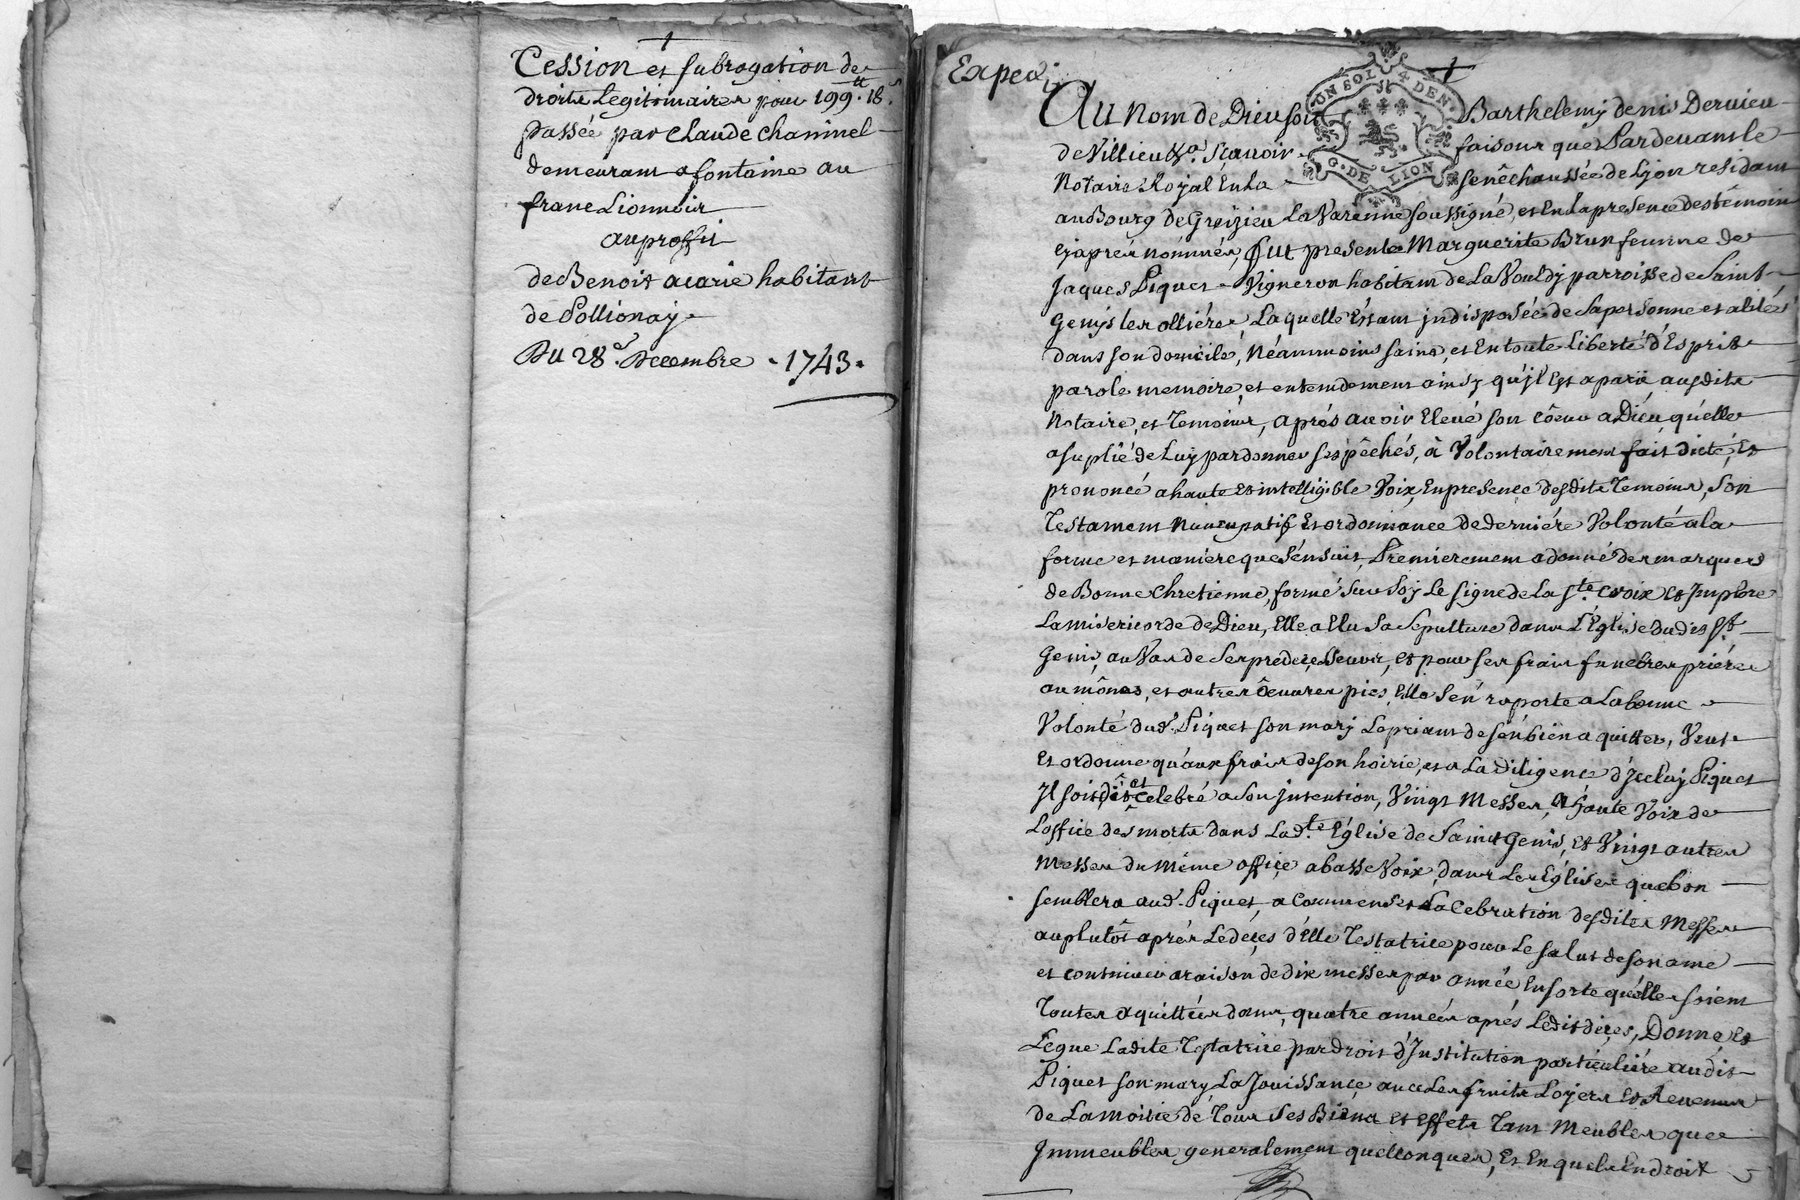 Cession et subrogation de
droits Legitimaires pour 199.tt 18.s
passée par Claude Chaninel
demeurant a fontaine au
franc Lionnoir
au proffit
de Benoit acarie habitant
de Pollionay
Du 28e. Decembre . 1743.
Exped.
UN SOL 4 DEN.
G. DE LION
Au Nom de Dieu soit Barthelemy denis Dervieu
de Villieu &a. Scavoir faisons que Pardevant le
Notaire Royal En La senêchaussée de Lyon residant
au Bourg de Greizieu La Varenne soussigné, et En La presence des têmoins
cy après nommés, fut presente Marguerite Brun femme de
Jaques Piquet Vigneron habitant de La Vouldy parroisse de Saint
Genys les olliéres Laquelle Estant jndisposée de sa personne et alitée
dans son domicile, Néanmoins saine, et En toute Liberté d'Esprit
parole memoire, et entendement ainsy qu'jl Est aparu ausdits
Notaire, et Temoins, après avoir Elevé son cœur a Dieu qu'elle
a suplié de Luy pardonner ses pêchés, à Volontairement fait dicté, Et
prononcé a haute et intelligible Voix, En presence desdits Temoins, son
Testament Nuncupatif Et ordonnance de derniére Volonté a la
forme et maniere que s'énsuit, Premierement a donné des marques
de Bonne Chretienne, formé sur soy Le signe de La ste. croix et Jmplore
La misericorde de Dieu, Elle a Elu sa sépulture dans L'Église dudit St
Genis, au Vas de ses predecesseurs, et pour ses frais funebres priéres
aumônes, et autres œuvres pies, Elle s'én raporte a La bonne
Volonté dud. Piquet son mary Le priant de s'én bien aquitter, Veut
et ordonne qu'aux frais de son hoirie, et a La diligence d'Jceluy Piquet
Jl soit dit et celebré a son jntention, Vingt Messes, a haute Voix de
L'office des morts dans Lad.te Église de Saint Genis, et Vingt autres
Messes du Méme office a basse Voix, dans Les Églises que bon
semblera aud. Piquet, a Commencer La Cebration desdites Messes
au plutôt après Le deçes d'Elle Testatrice pour Le salut de son ame
et continuer a raison de dix messes par année En sorte qu'elles soient
toutes aquittées dans quatre années aprés Ledit deçes, Donne, et
Legue Ladite Testatrice par droit d'Institution particuliére audit
Piquet son mary La Jouissance avec Les fruits Loyers Et Revenus
de La moitié de tous ses Biens et Effets Tant Meubles que
Jmmeubles generalement quelconques, Et En quels Endroit